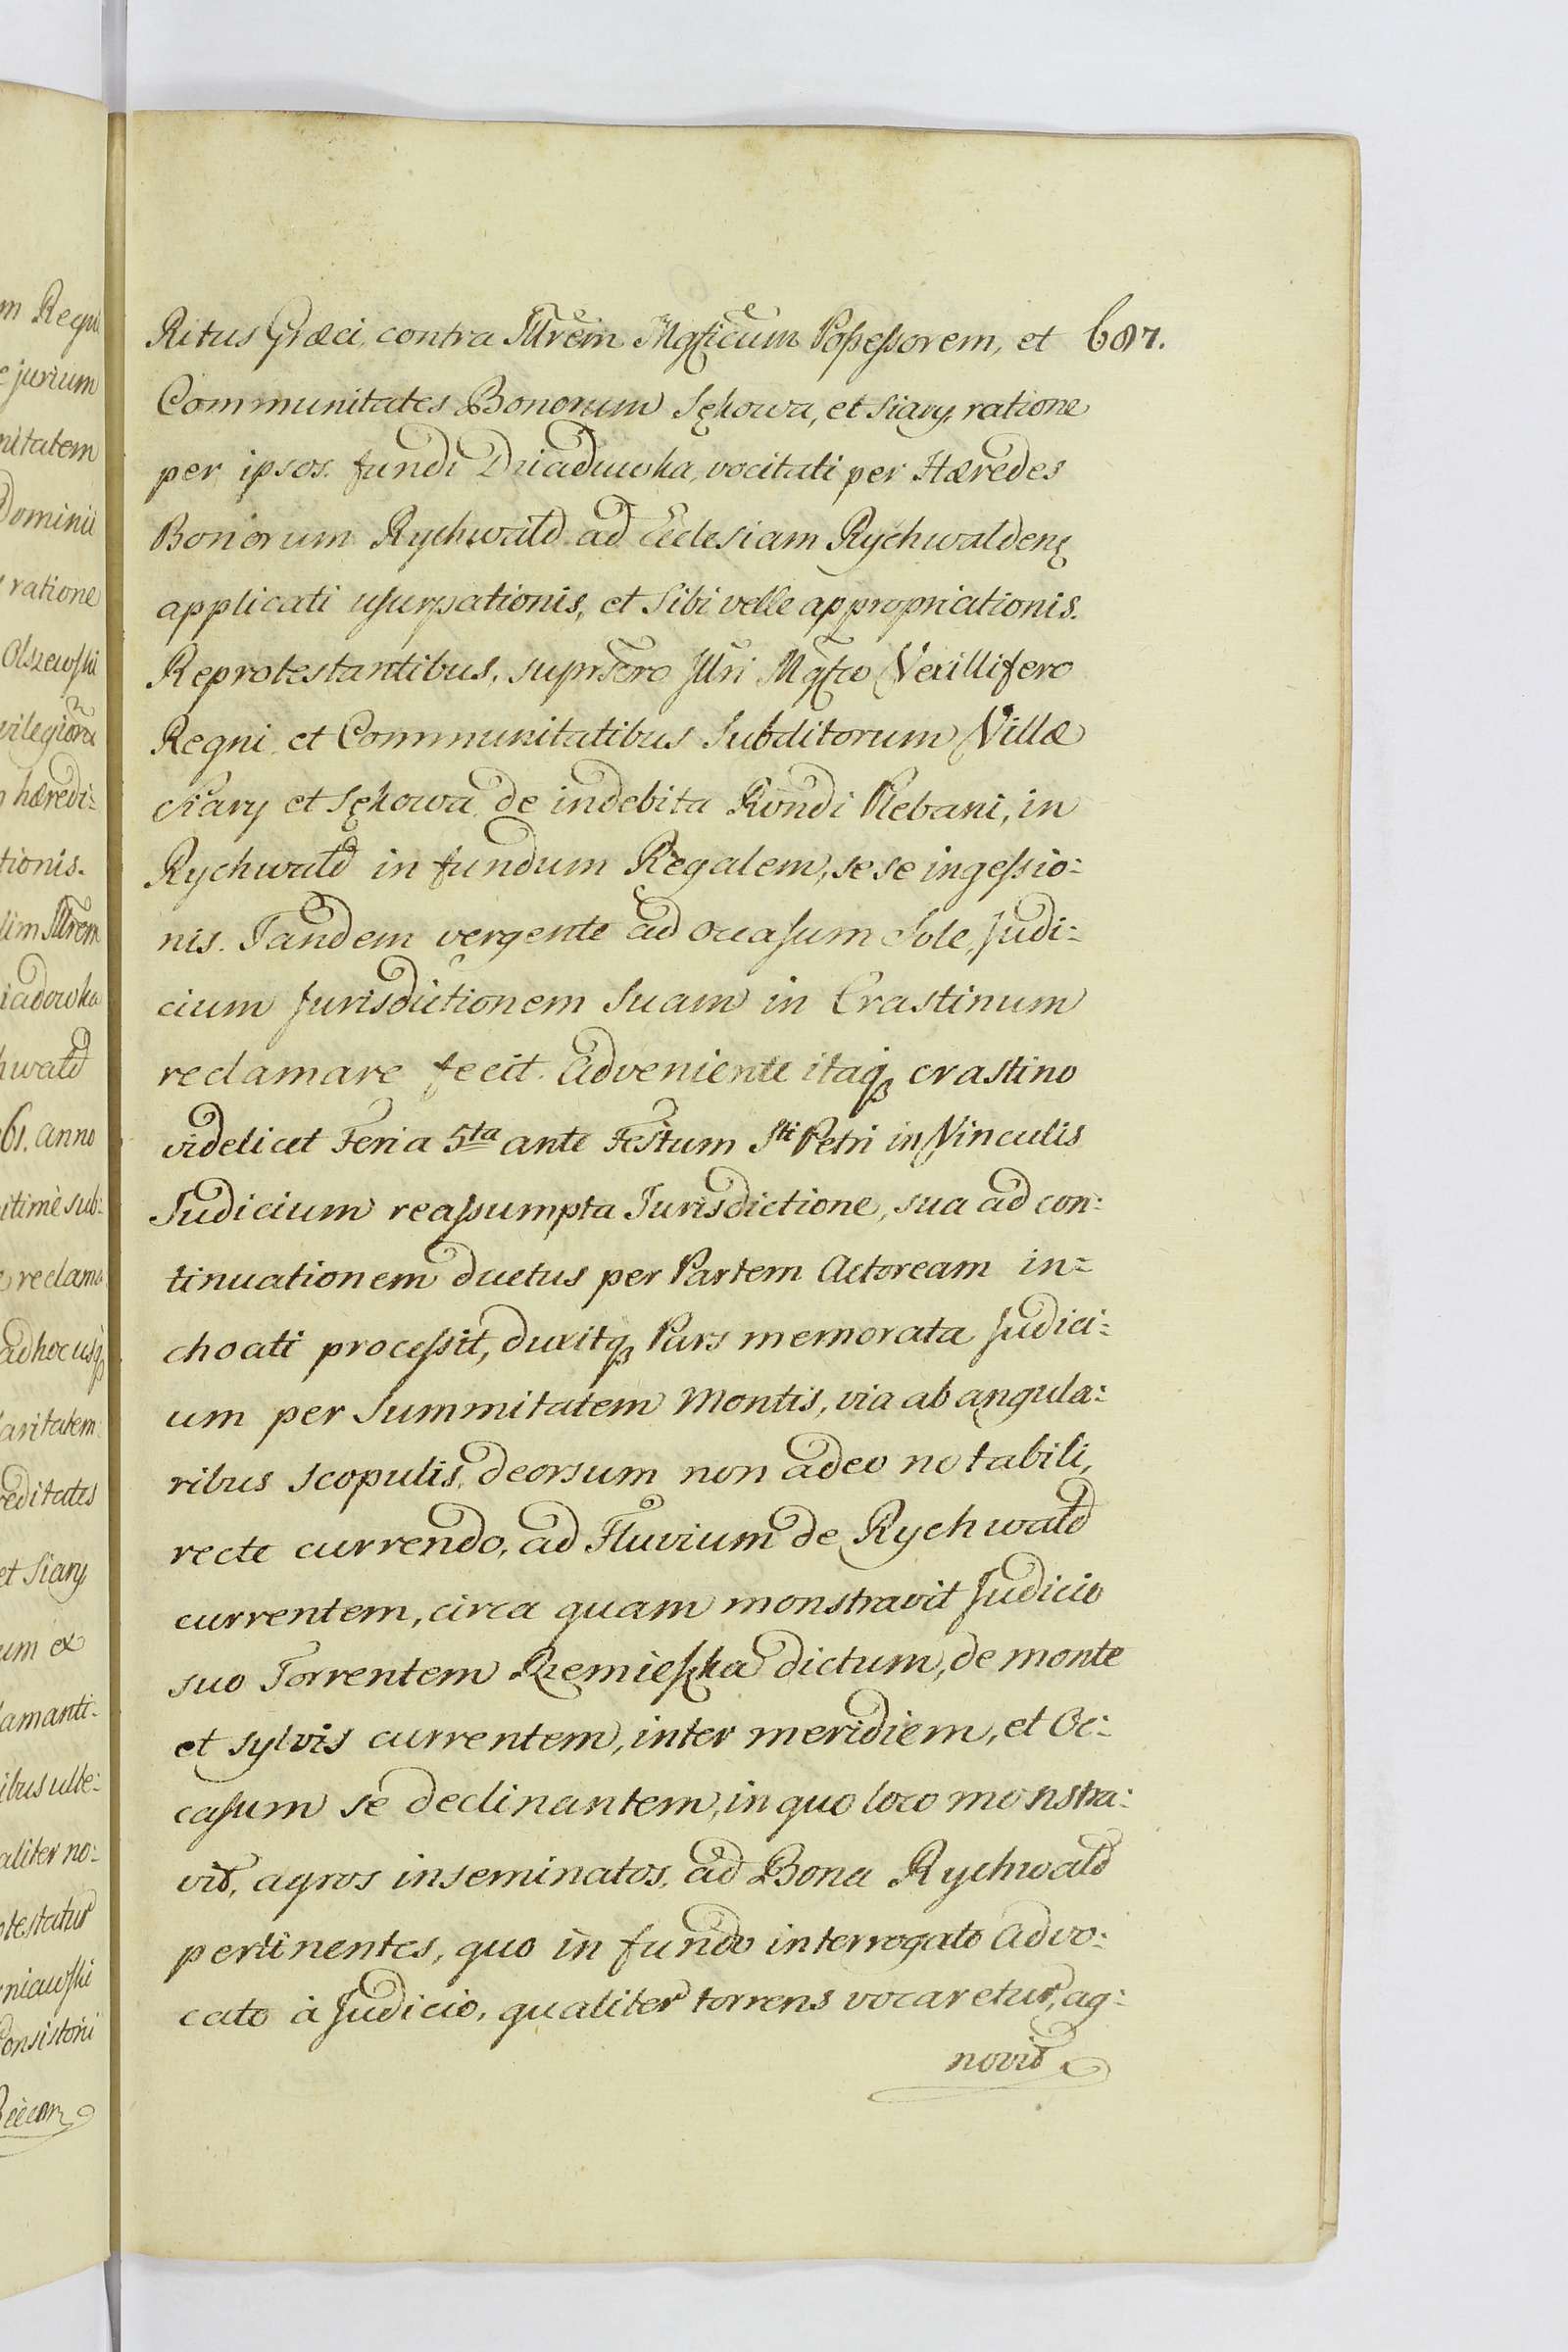 Ritus Græci, contra Illrem Mgficum Possessorem, et 687.
Communitates Bonorum Sękowa, et Siary, ratione
per ipsos fundi Dziadowka, vocitati per Hæredes
Bonorum Rychwald ad Ecclesiam Rychwaldenę
applicati usurpationis, et Sibi velle appropriationis.
Reprotestantibus, Illri Mgfco Vexillifero
Regni et Communitatibus Subditorum Villæ
Siary et Sękowa de indebita Plebani, in
Rychwald in fundum Regalem, se se ingessio:
nis. Tandem vergente ad occasum Sole, Judi:
cium Jurisdictionem Suam in Crastinum
reclamare fecit. Adveniente itaqꝫ crastino
videlicet Feria 5ta ante Festum Sti Petri in Vinculis
Judicium reassumpta Jurisdictione, sua ad con:
tinuationem ductus per Partem Actoream in=
choati processit, duxitqꝫ Pars memorata Judici:
um per Summitatem Montis, via ab angula:
ribus scopulis, deorsum non adeo notabili,
recte currendo, ad Fluvium de Rychwald
currentem, circa quam monstravit Judicio
suo Torrentem dictum, de monte
et sylvis currentem, inter meridiem, et Oc:
casum se declinantem, in quo loco monstra:
vit, agros inseminatos, ad Bona Rychwald
pertinentes, quo in fundo interrogato Advo:
cato à Judicio, qualiter torrens vocaretur, ag:
novit
m Regni
e jurium
nitatem
Dominii
ratione
Olszewski
hæredi=
tionis.
lim Illrem
iadowka
hwald
61. anno
itimè sub:
reclama
adhoc usqꝫ
aritatem
reditates
et Siary
um ex
lamanti=
ibus ulte:
aliter no:
otestatur
niawski
Consistorii